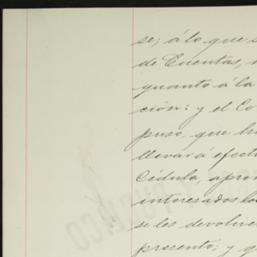 se; á lo que s
de Cuentas,
quanto á la
ción: y el Co
puso, que ha
llevará efect
Cédula, apro
interesados lo
se les devolvie
presento; y q